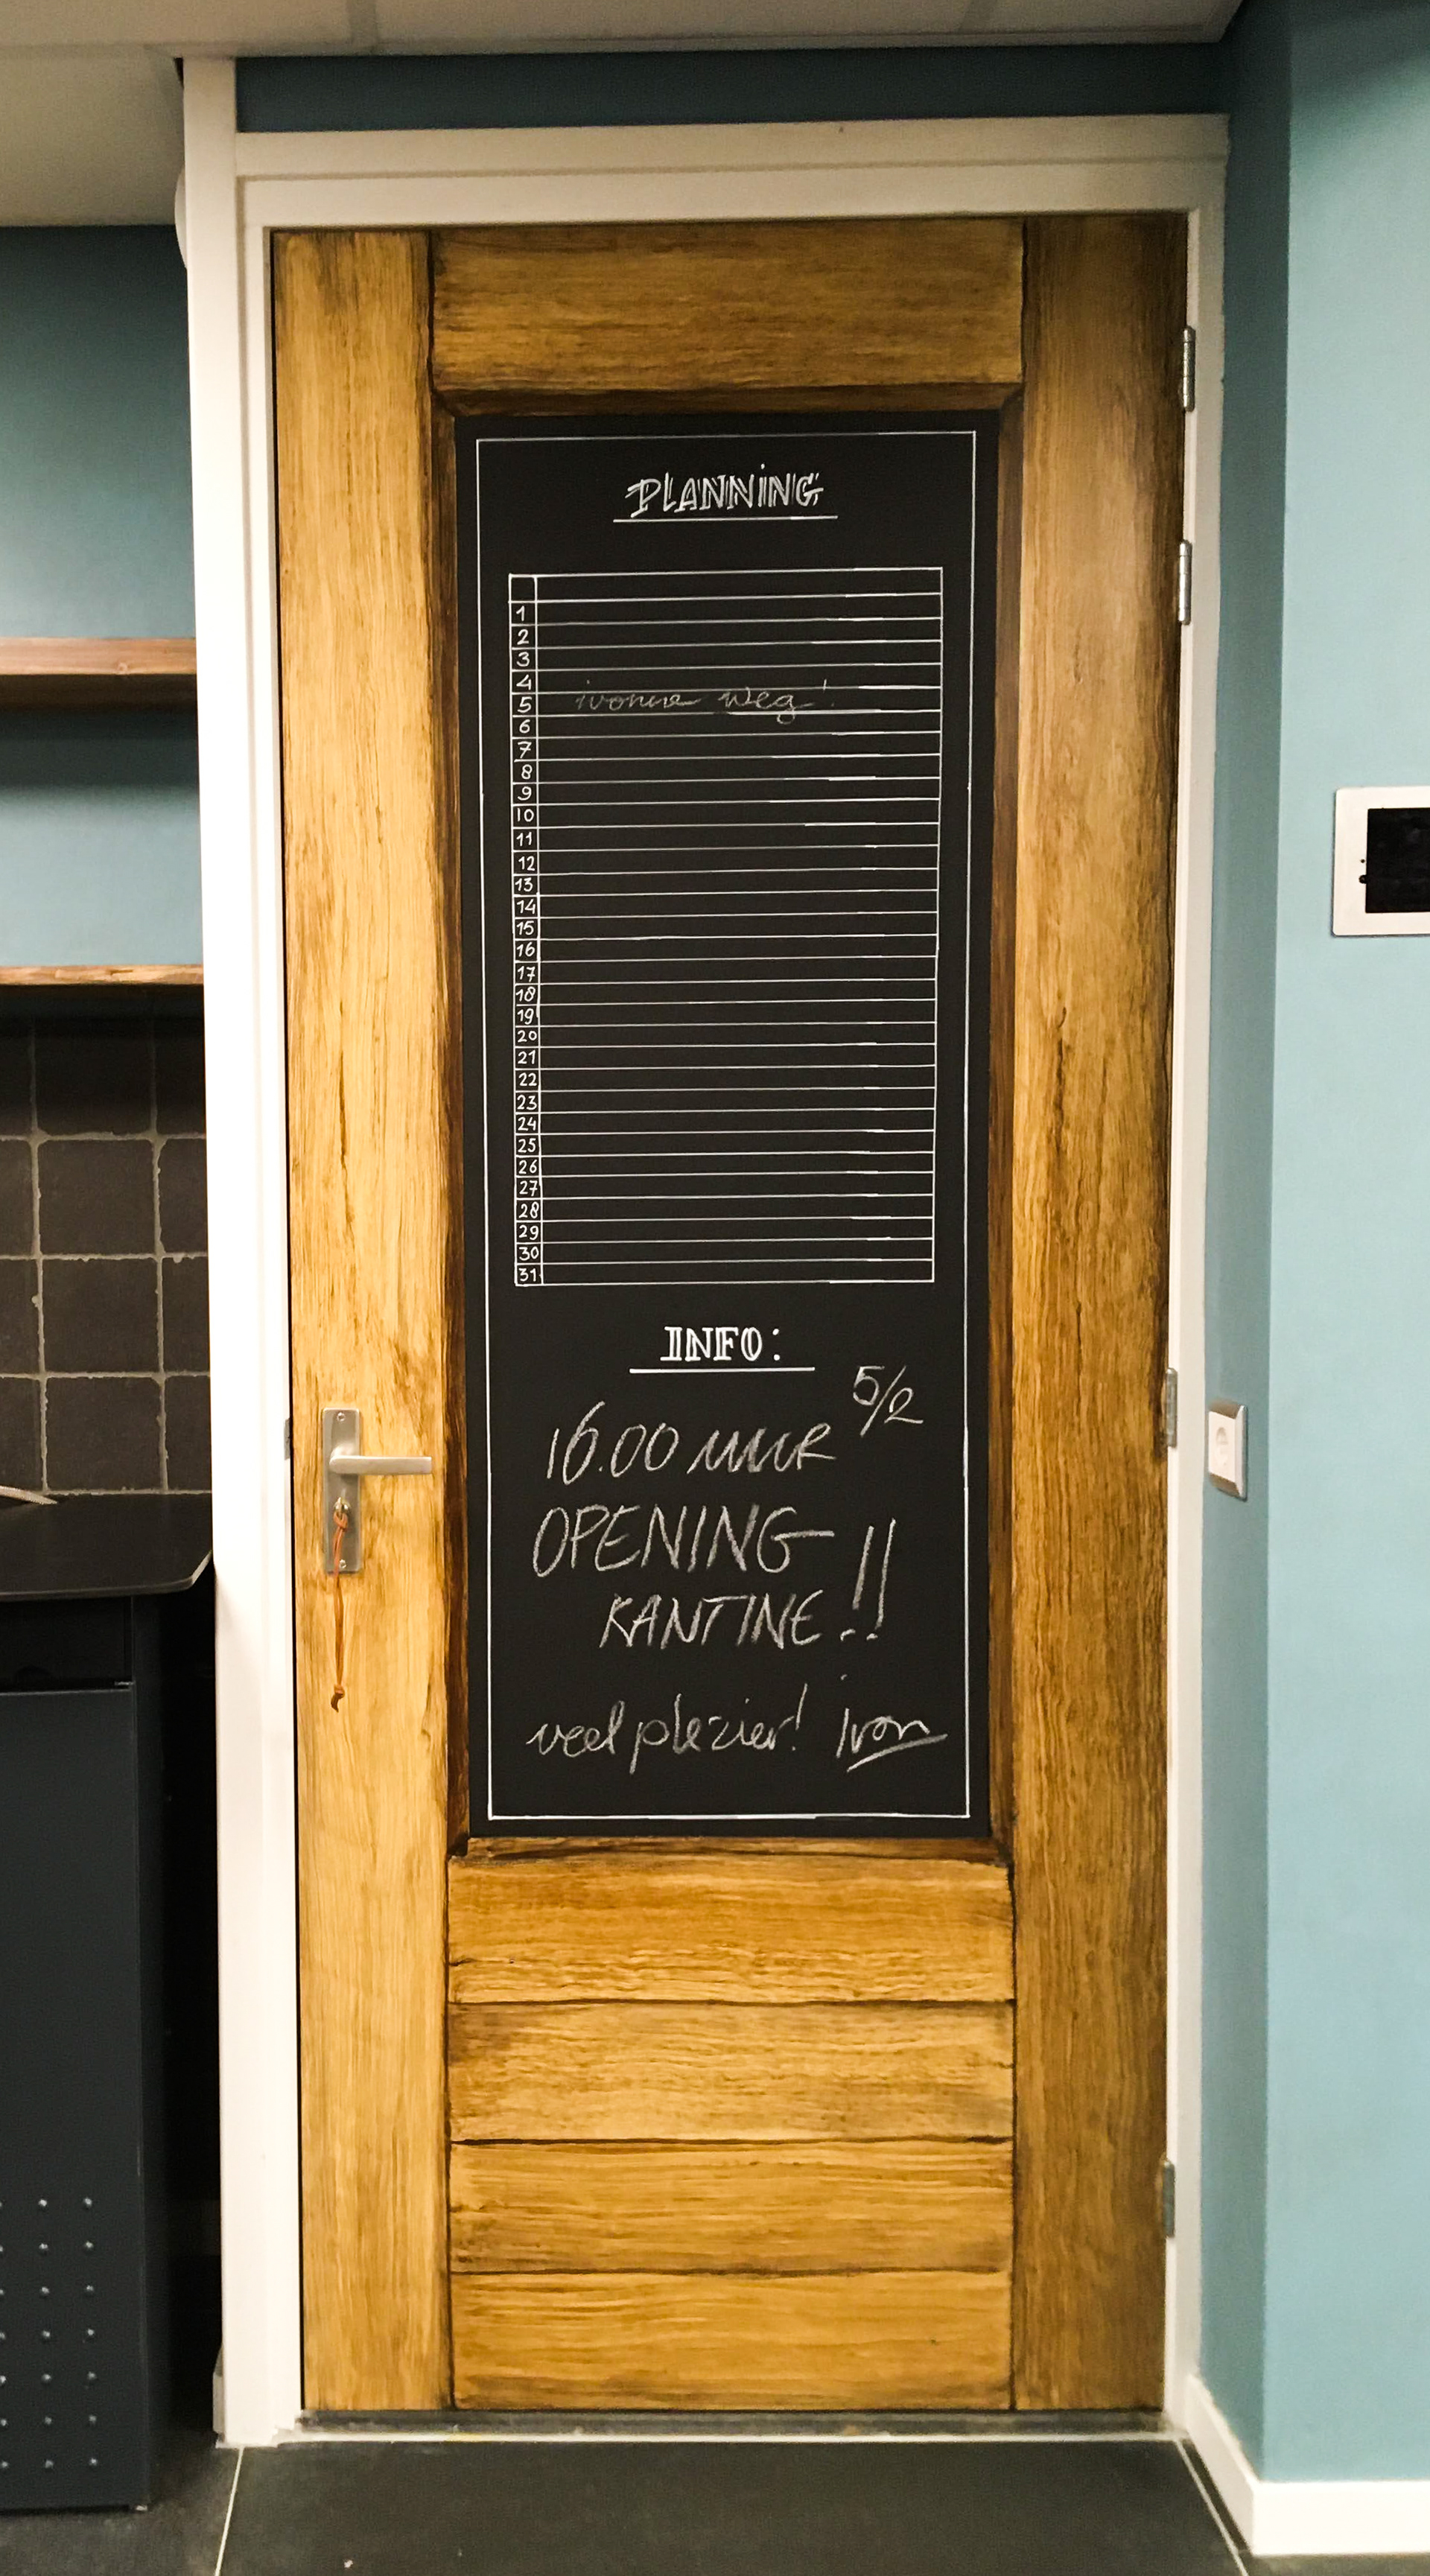 PLANNiNG
1
2
3
4
5 ivonne weg!
6
7
8
9
10
11
12
13
14
15
16
17
18
19
20
21
22
23
24
25
26
27
28
29
30
31
INFO:
5/2
16.00 UUR
OPENING
KANTINE!!
veel plezier! ivon